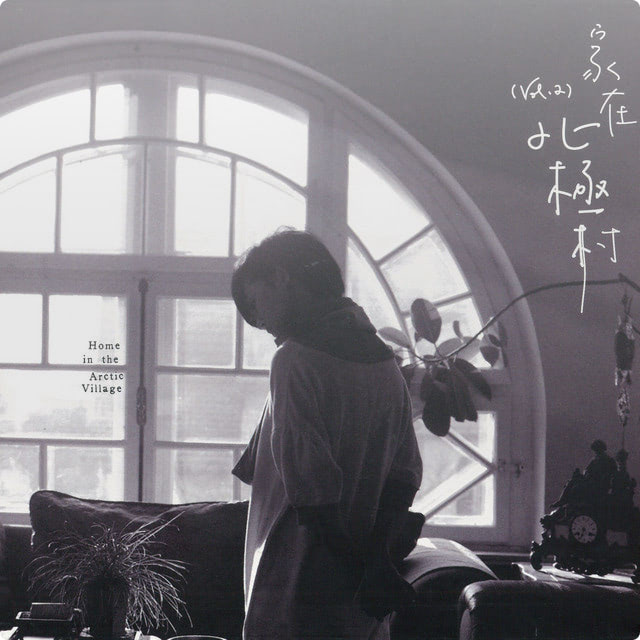 家在
(Vol.2)
北極村
Home
in the
Arctic
Village